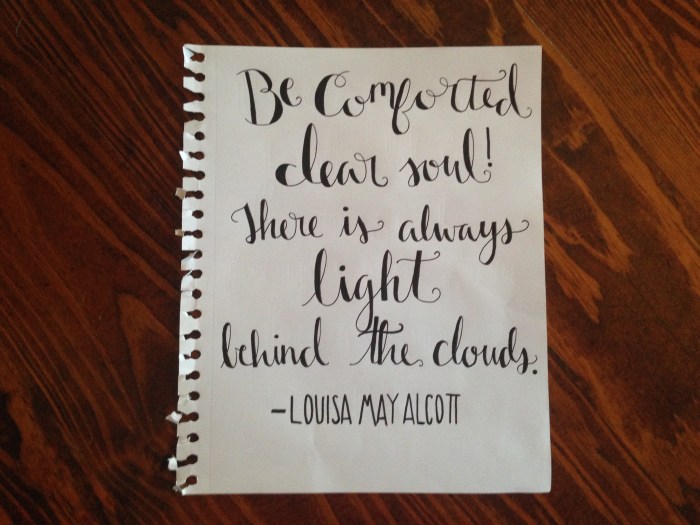 Be Comforted
dear soul!
There is always
light
behind the clouds.
-LOUISA MAY ALCOTT